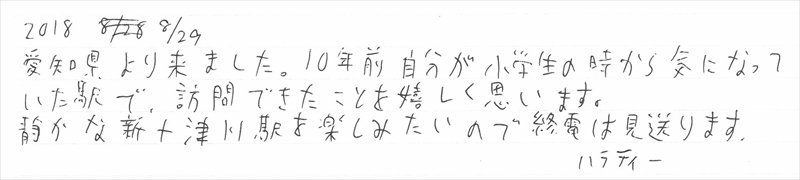 2018 8/28 8/29
愛知県より来ました。10年前自分が小学生の時から気になって
いた駅で、訪問できたことを嬉しく思います。
静かな新十津川駅を楽しみたいので終電は見送ります。
ハラディー